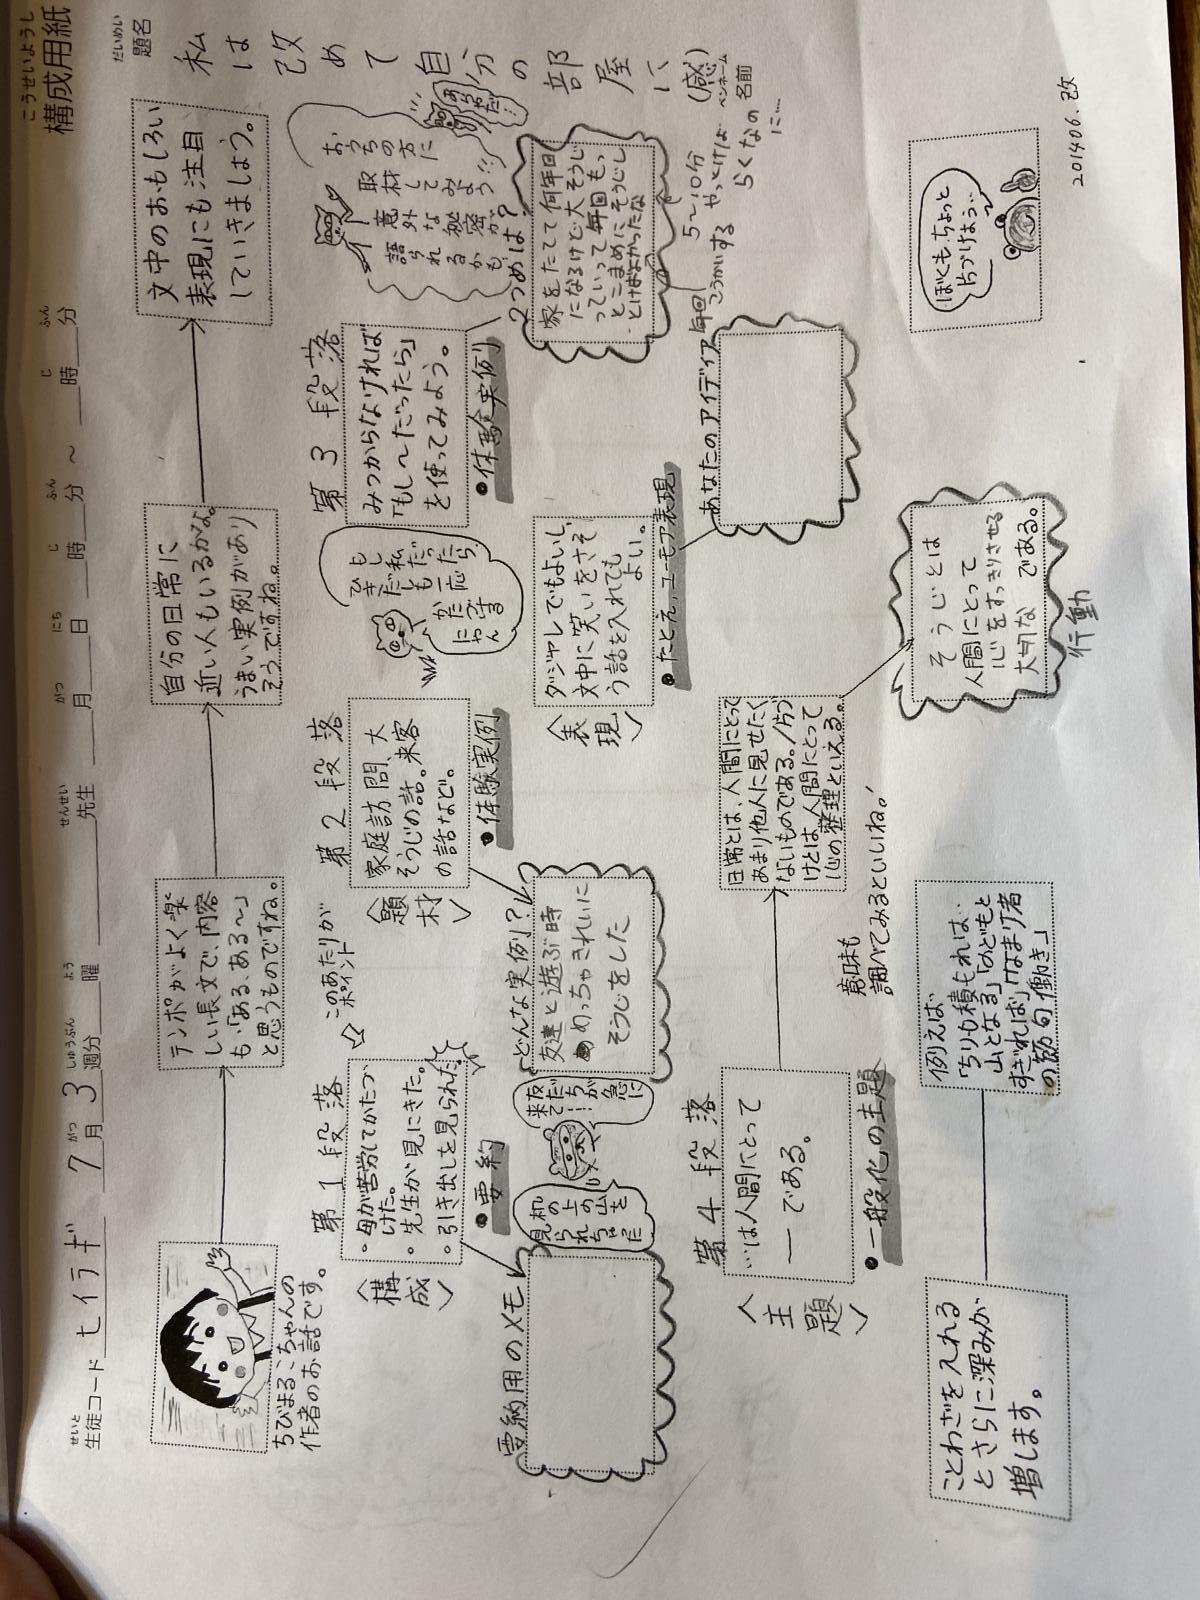 こうせいようし
構成用紙
せいと
生徒コード ヒイラギ 7月 3週分 曜 先生 月 日 時 分 ～ 時 分
がつ しゅうぶん よう せんせい がつ にち じ ふん じ ふん
だいめい
題名
私は改めて自分の部屋に(感)
ペンネーム
名前
ちびまるこちゃんの
作者のお話です。
テンポがよく楽
しい長文で、内容
も、「ある、ある～」
と思うものですね。
自分の日常に
近い人もいるかな。
うまい実例があり
そうですね。
文中のおもしろい
表現にも注目
していきましょう。
第1段落
〈構成〉
・母が苦労してかたづ
けた。
・先生が見にきた。
・引き出しを見られた
●要約
このあたりが
ポイント
要約用のメモ
見られちゃだ
机の上の山を
友だちが急に
来て…
第2段落
〈題材〉
家庭訪問、大
そうじの話。来客
の話など。
●体験実例
どんな実例?
友達と遊ぶ時
めっちゃきれいに
そうじをした
もし私だったら、
ひきだしも一応
かたづける
にゃん
第3段落
みつからなければ
「もし～だったら」
を使ってみよう。
●体験実例
おうちの方に
取材してみよう!!
意外な秘密が
語られるかも
2つめは?
家をたてて何年目
になるけど大そうじ
っていって毎回もっ
とこまめにそうじし
とけばよかったな
毎回
こうかいする
5～10分
やっとけば
らくなの
に…
〈表現〉
ダジャレでもよいし、
文中に笑いをさそ
う話を入れても
よい。
●たとえ、ユーモア表現
あなたのアイディア
第4段落
〈主題〉
…は人間にとって
―である。
●一般化の主題
日常とは、人間にとって
あまり他人に見せたく
ないものである。/片づ
けとは人間にとって
心の整理といえる。
そうじとは
人間にとって
心をすっきりさせる
大切な
である。
行動
ことわざを入れる
とさらに深みが
増します。
例えば
「ちりも積もれば、
山となる」「のどもと
すぎれば」「なまけ者
の節句働き」
意味も
調べてみるといいね。
ぼくも、ちょっと
片づけよう…
201406.改